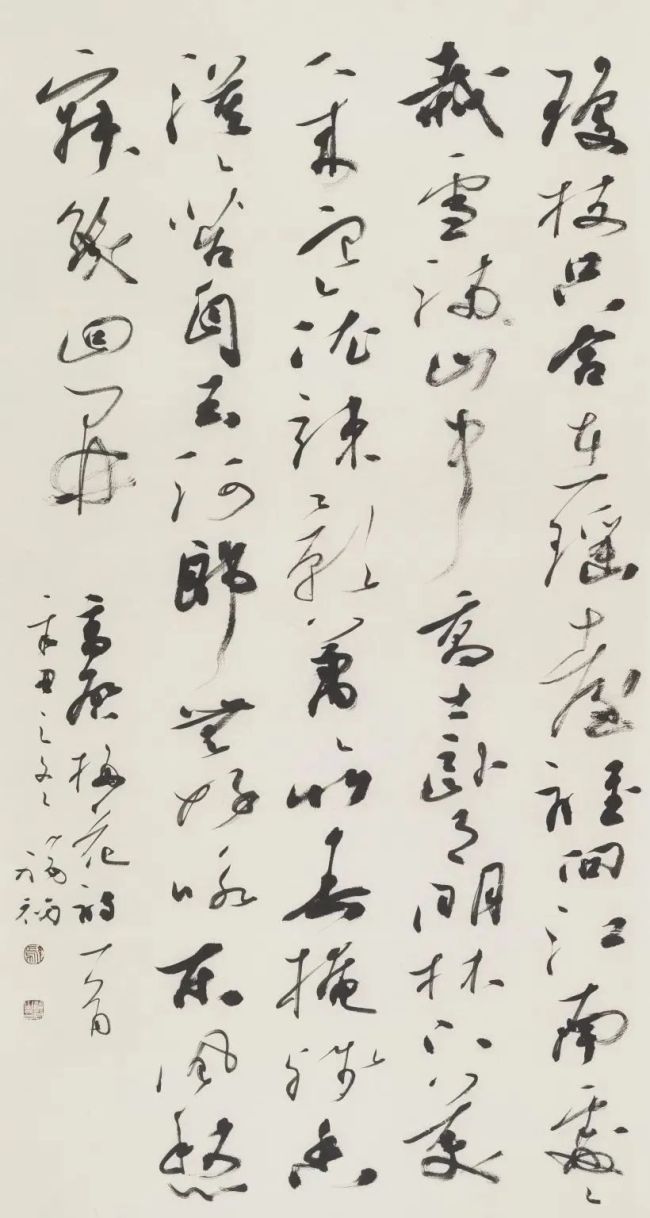 瓊枝只合在瑤臺誰向江南處〻
栽雪滿山中高士臥月明林下美
人來寒依疎影蕭〻竹春掩殘香
漠〻苔自去何郎無好詠東風愁
寂幾回開
高啓梅花詩一首
辛丑之冬